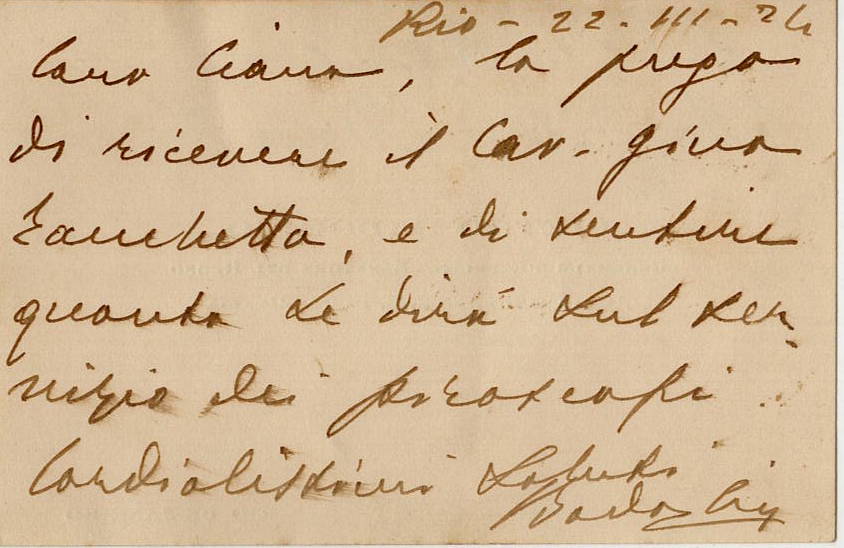 Rio - 22 - III - 24
Caro Ciano, la prego
di ricevere il Cav. Gino
Zanchetta, e di sentire
quanto Le dirà sul ser-
vizio dei piroscafi.
Cordialissimi saluti
Badoglio